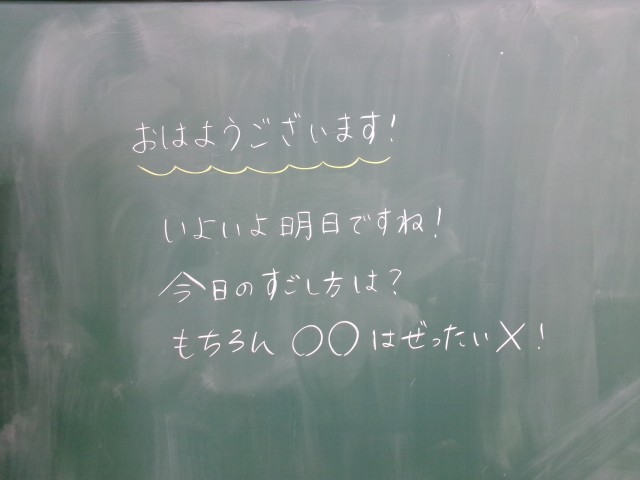 おはようございます!
いよいよ明日ですね!
今日のすごし方は?
もちろん 〇〇はぜったい×!